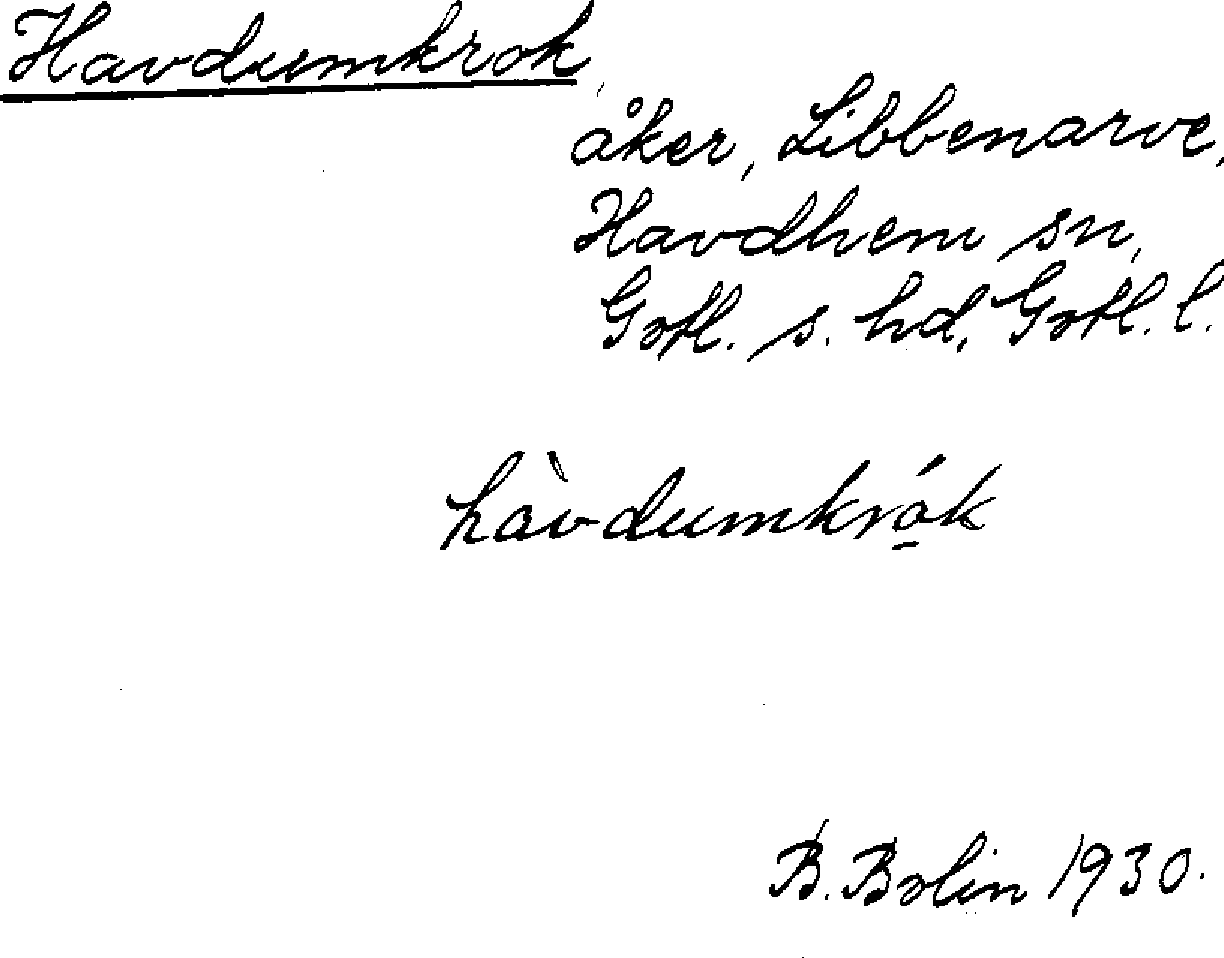 Havdumkrok,
åker, Libbenarve,
Havdhem sn,
Gotl. s. hd, Gotl. l.
hàvdumkró̱k
B. Bolin 1930.